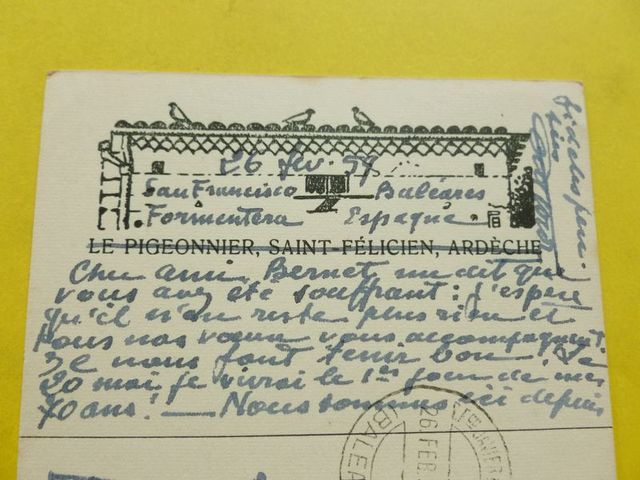 26 fév. 59
San Francisco Baléares
Formentera Espagne
LE PIGEONNIER, SAINT-FÉLICIEN, ARDÈCHE
Cher ami, Bernet me dit que
vous avez été souffrant : j'espère
qu'il n'en reste plus rien et
tous nos vœux vous accompagnent
Il nous faut tenir bon! Le
20 mai je vivrai le 1er jour de mes
70 ans! — Nous sommes ici depuis
26 FEB.
BALEA